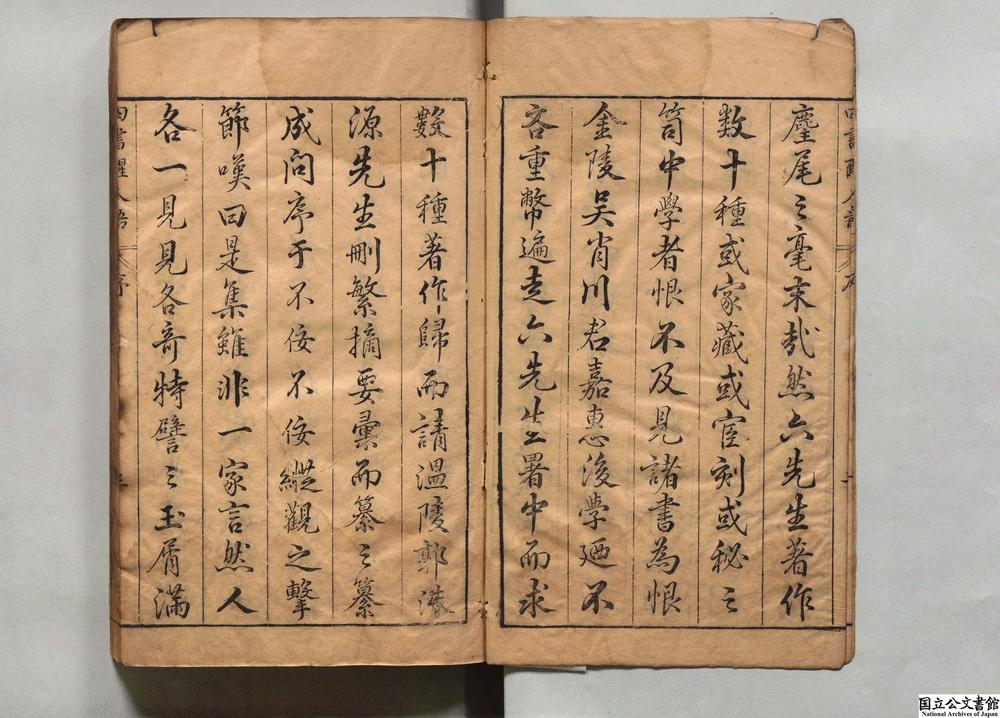 麈尾之毫末哉然六先生著作
数十種或家藏或宦刻或秘之
笥中學者恨不及見諸書為恨
金陵吳肖川君嘉惠後學廼不
吝重幣遍走六先生署中而求
數十種著作歸而請溫陵郭洙
源先生刪繁摘要彙而纂之纂
成問序于不佞不佞縱觀之擊
節嘆曰是集雖非一家言然人
各一見見各奇特譬之玉屑滿
四書醒人語 序
国立公文書館
National Archives of Japan